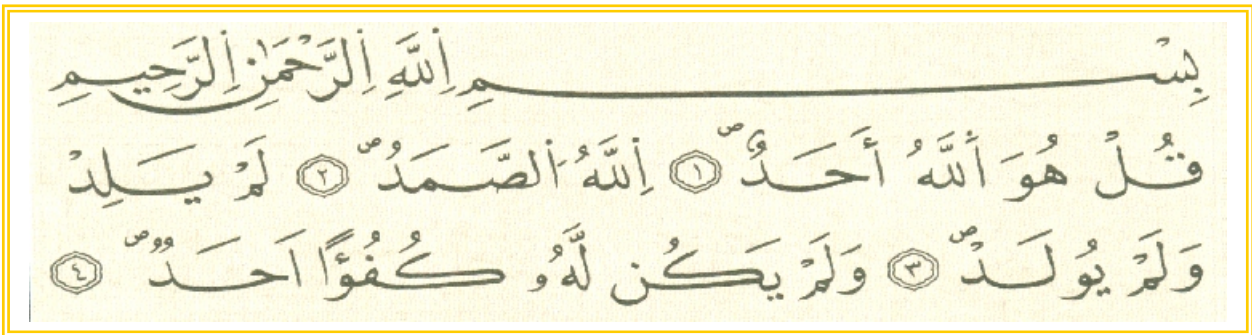 بِسْـــمِ اِللَّهِ اِلرَّحْمَٰنِ اِلرَّحِيمِ
قُلْ هُوَ اَللَّهُ أَحَدٌ ۖ ١ اِللَّهُ اُلصَّمَدُ ۖ ٢ لَمْ يَلِدْ
وَلَمْ يُولَدْ ۖ ٣ وَلَمْ يَكُن لَّهُۥ كُفُؤًا اَحَدٌ ۖ ٤